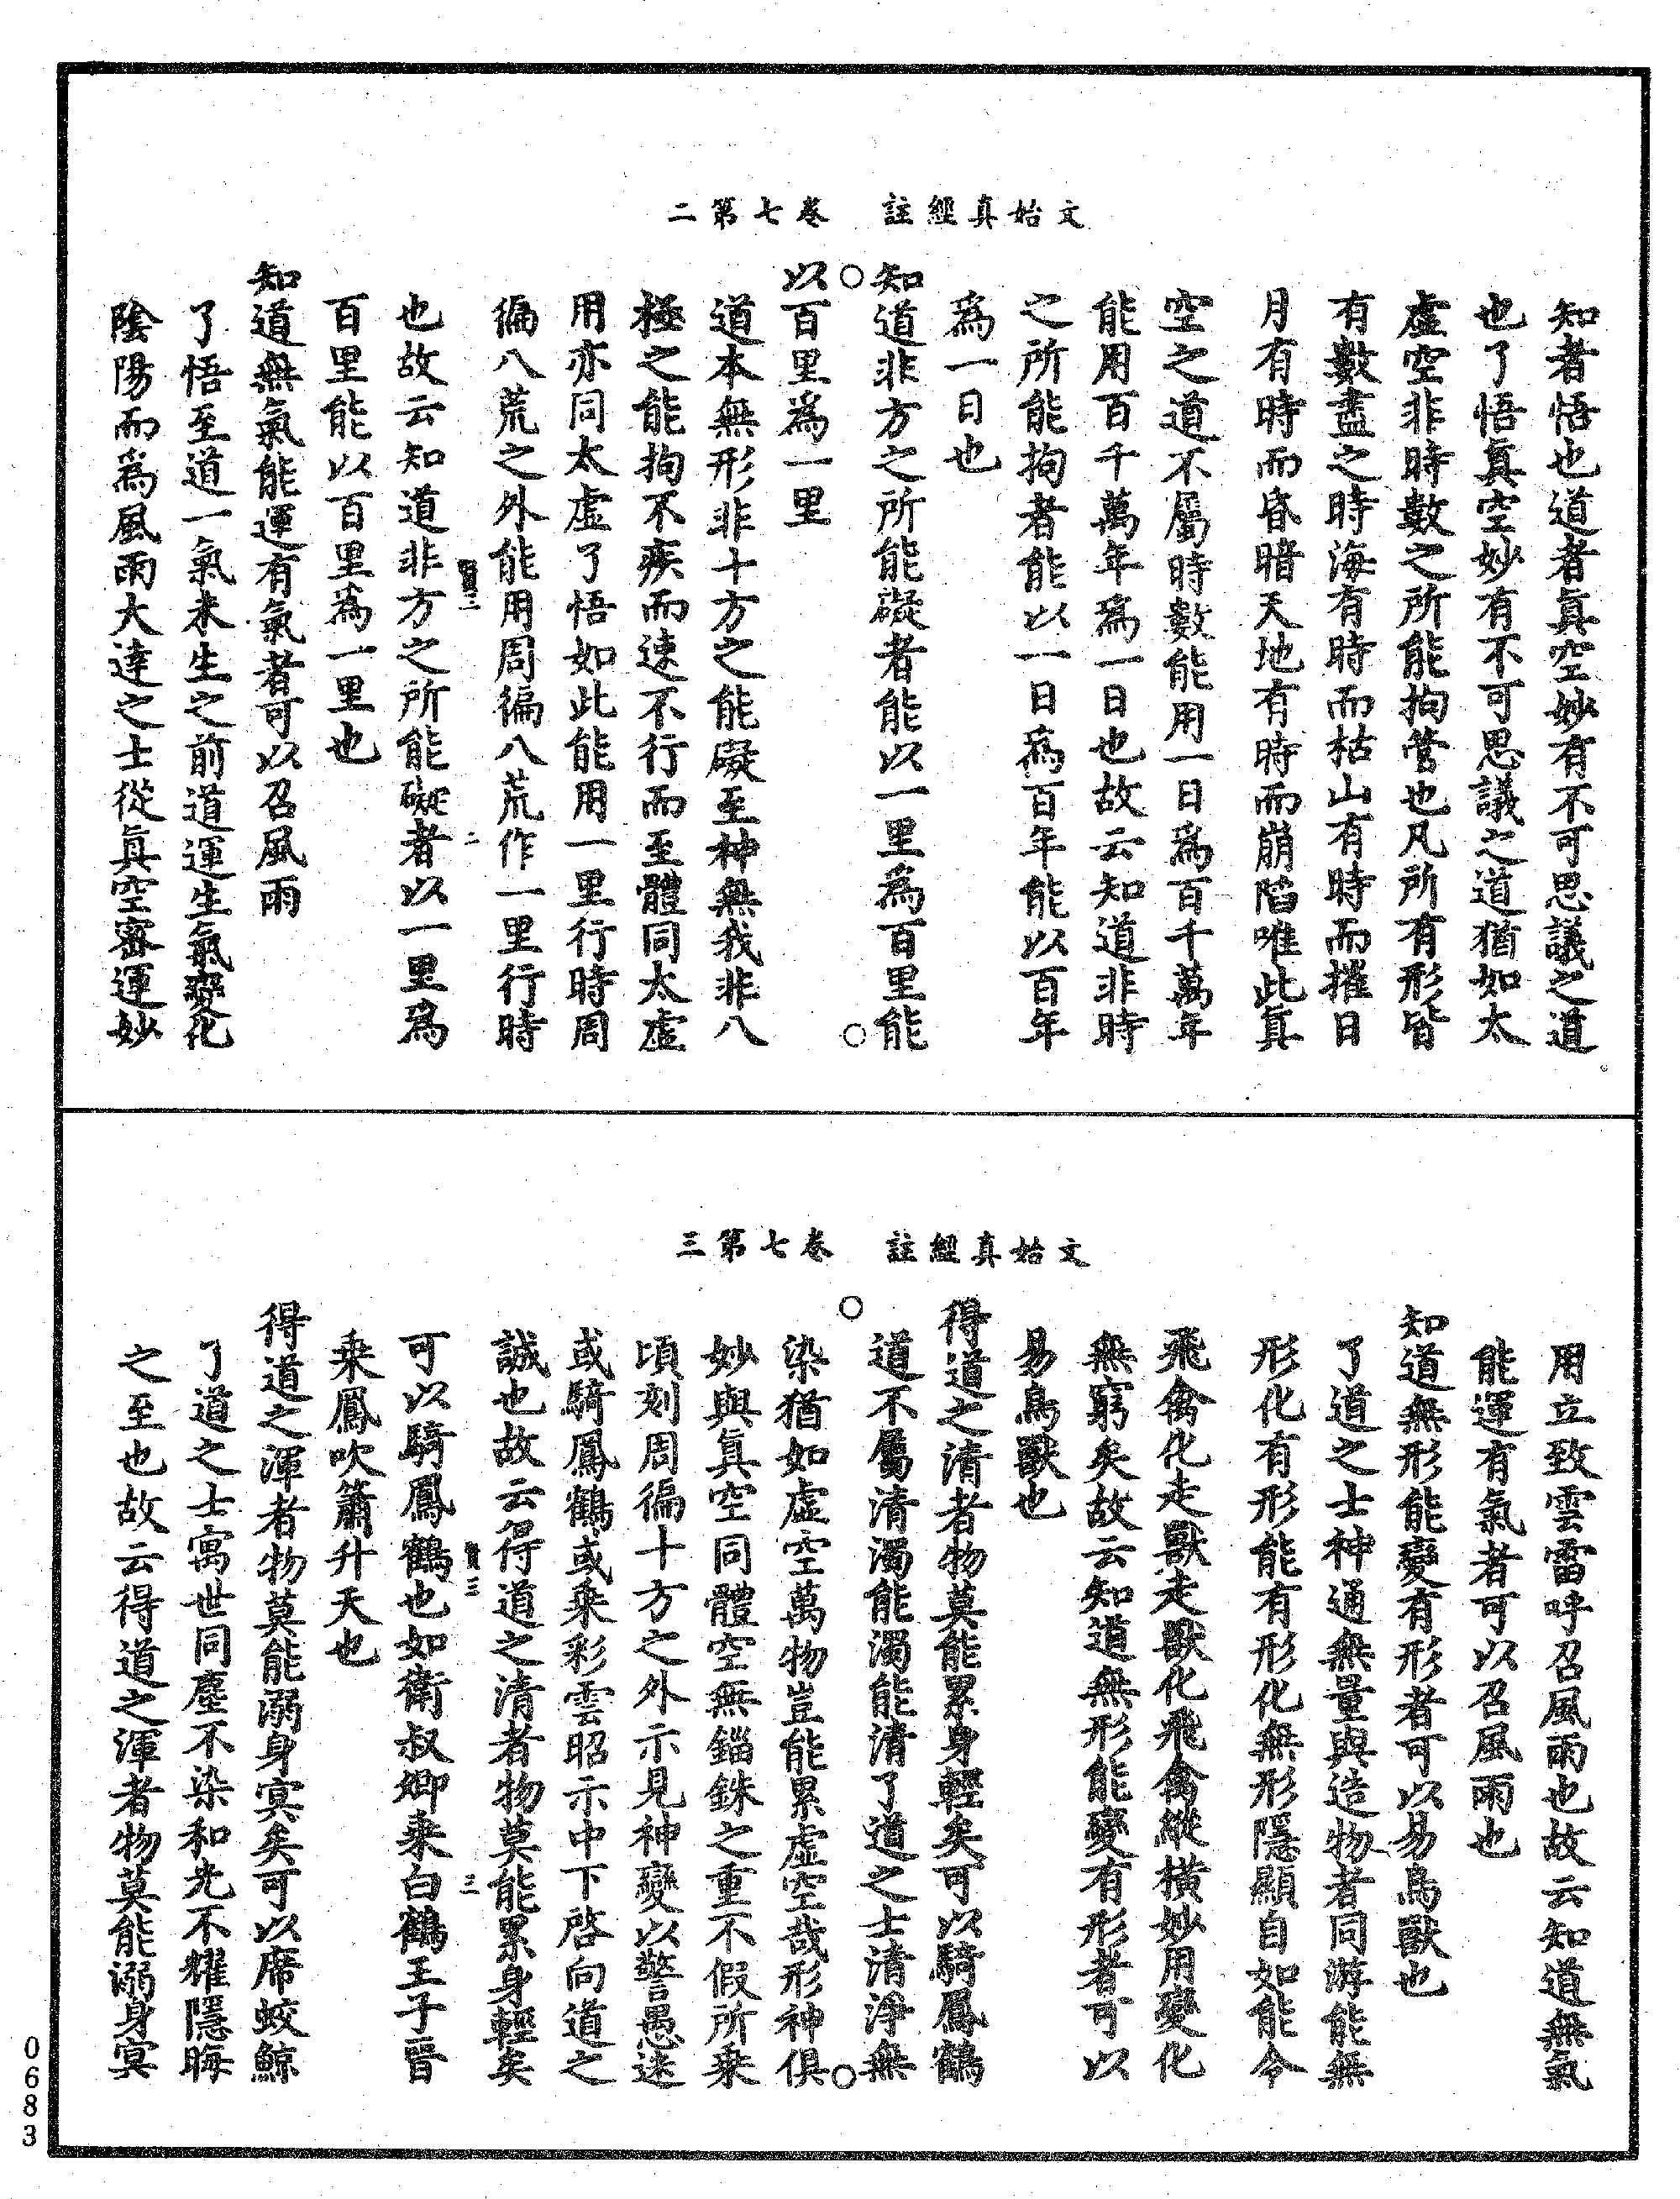 文始真經註　卷七第二
知者悟也道者真空妙有不可思議之道
也了悟真空妙有不可思議之道猶如太
虛空非時數之所能拘管也凡所有形皆
有數盡之時海有時而枯山有時而摧日
月有時而昏暗天地有時而崩陷唯此真
空之道不屬時數能用一日爲百千萬年
能用百千萬年爲一日也故云知道非時
之所能拘者能以一日爲百年能以百年
爲一日也
知道非方之所能礙者能以一里爲百里能
以百里爲一里
道本無形非十方之能礙至神無我非八
極之能拘不疾而速不行而至體同太虛
用亦同太虛了悟如此能用一里行時周
徧八荒之外能用周徧八荒作一里行時
也故云知道非方之所能礙者以一里爲
百里能以百里爲一里也
知道無氣能運有氣者可以召風雨
了悟至道一氣未生之前道運生氣變化
陰陽而爲風雨大達之士從真空審運妙
二
文始真經註　卷七第三
用立致雲雷呼召風雨也故云知道無氣
能運有氣者可以召風雨也
知道無形能變有形者可以易鳥獸也
了道之士神通無量與造物者同游能無
形化有形能有形化無形隱顯自如能令
飛禽化走獸走獸化飛禽縱橫妙用變化
無窮矣故云知道無形能變有形者可以
易鳥獸也
得道之清者物莫能累身輕矣可以騎鳳鶴
道不屬清濁能濁能清了道之士清淨無
染猶如虛空萬物豈能累虛空哉形神俱
妙與真空同體空無錙銖之重不假所乘
頃刻周徧十方之外示見神變以警愚迷
或騎鳳鶴或乘彩雲昭示中下啓向道之
誠也故云得道之清者物莫能累身輕矣
可以騎鳳鶴也如衛叔卿乘白鶴王子晉
乘鳳吹簫升天也
得道之渾者物莫能溺身冥矣可以席蛟鯨
了道之士寓世同塵不染和光不耀隱晦
之至也故云得道之渾者物莫能溺身冥
三
0683